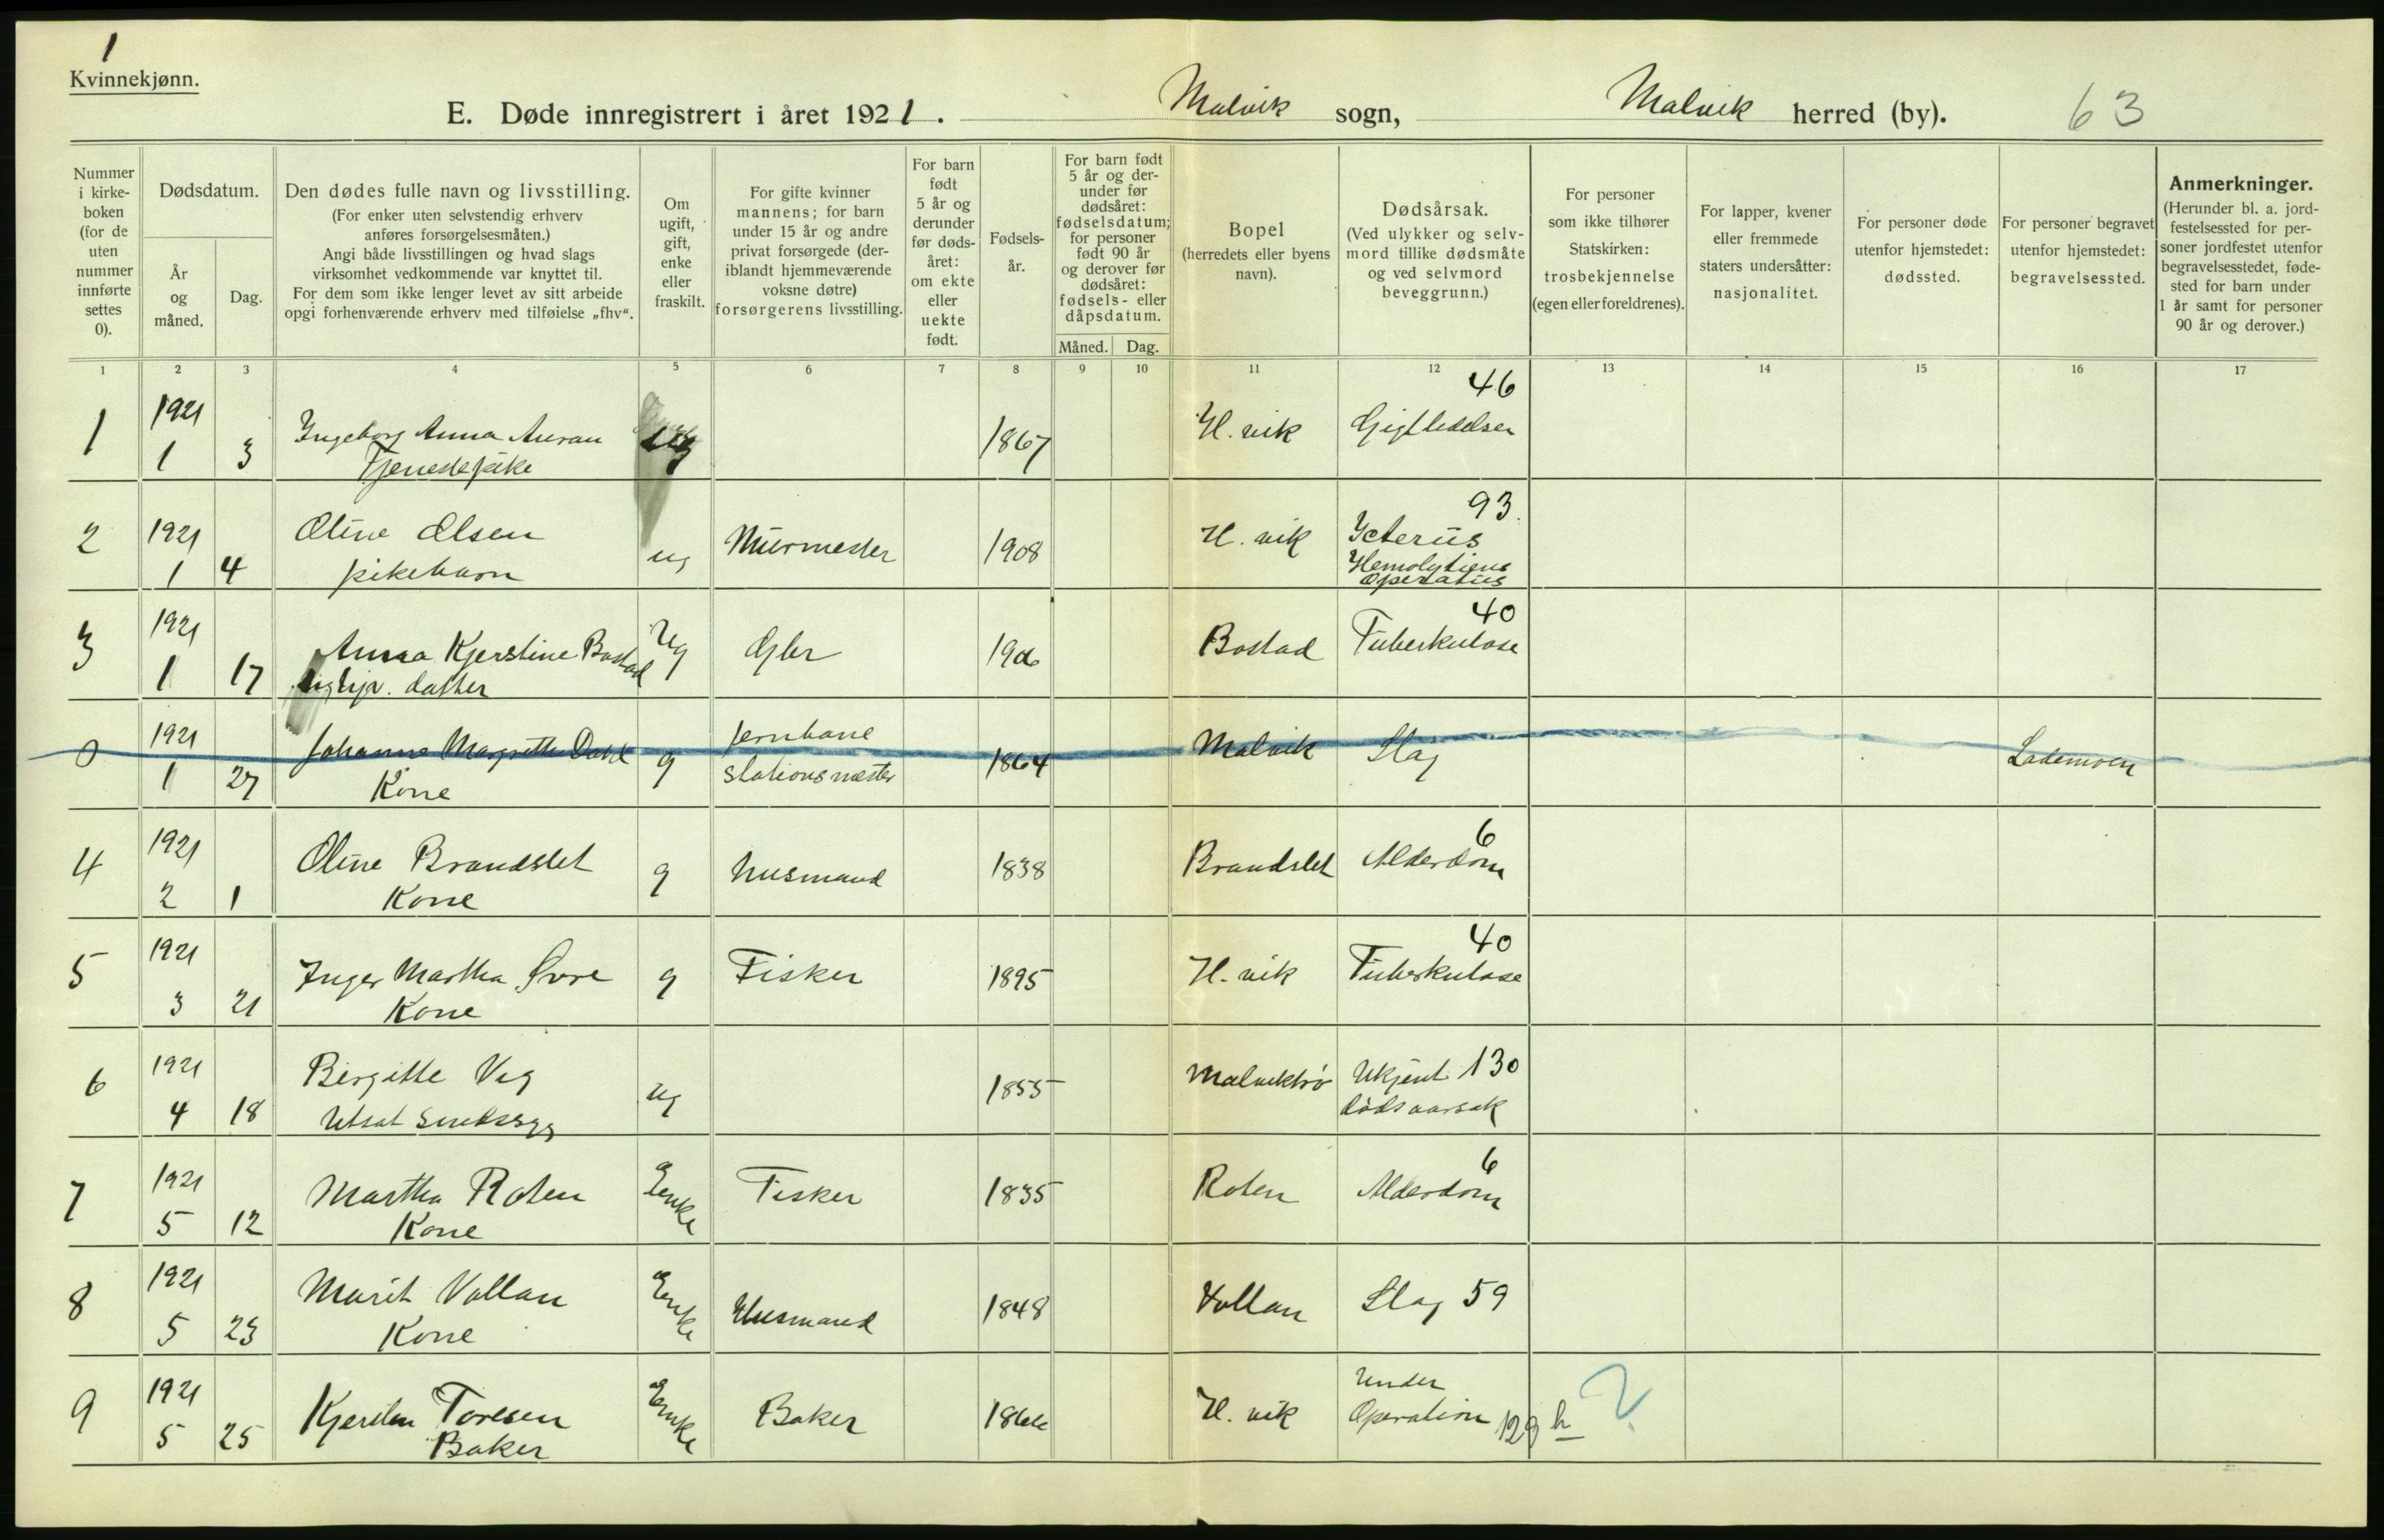 1
Kvinnekjønn.
E. Døde innregistrert i året 1921. Malvik sogn, Malvik herred (by). 63
Nummer
i kirke-
boken
(for de
uten
nummer
innførte
settes
0).
Dødsdatum.
År
og
måned.
Dag.
Den dødes fulle navn og livsstilling.
(For enker uten selvstendig erhverv
anføres forsørgelsesmåten.)
Angi både livsstillingen og hvad slags
virksomhet vedkommende var knyttet til.
For dem som ikke lenger levet av sitt arbeide
opgi forhenværende erhverv med tilføielse „fhv“.
Om
ugift,
gift,
enke
eller
fraskilt.
For gifte kvinner
mannens; for barn
under 15 år og andre
privat forsørgede (der-
iblandt hjemmeværende
voksne døtre)
forsørgerens livsstilling.
For barn
født
5 år og
derunder
før døds-
året:
om ekte
eller
uekte
født.
Fødsels-
år.
For barn født
5 år og der-
under før
dødsåret:
fødselsdatum;
for personer
født 90 år
og derover før
dødsåret:
fødsels- eller
dåpsdatum.
Måned. Dag.
Bopel
(herredets eller byens
navn).
Dødsårsak.
(Ved ulykker og selv-
mord tillike dødsmåte
og ved selvmord
beveggrunn.)
For personer
som ikke tilhører
Statskirken:
trosbekjennelse
(egen eller foreldrenes).
For lapper, kvener
eller fremmede
staters undersåtter:
nasjonalitet.
For personer døde
utenfor hjemstedet:
dødssted.
For personer begravet
utenfor hjemstedet:
begravelsessted.
Anmerkninger.
(Herunder bl. a. jord-
festelsessted for per-
soner jordfestet utenfor
begravelsesstedet, føde-
sted for barn under
1 år samt for personer
90 år og derover.)
1 2 3 4 5 6 7 8 9 10 11 12 13 14 15 16 17
46
1 1921 Ingeborg Anna Auran ug 1867 H.vik Gigtlidelser
1 3 Tjenestepike
93
2 1921 Oline Olsen ug Murmester 1908 H.vik Icterus
1 4 pikebarn Hemolyticus
Operatus
40
3 1921 Anna Kjerstine Bostad Ug Gbr 1906 Bostad Tuberkulose
1 17 datter
0 1921 Johanna Margrethe g Jernbane 1864 Malvik Slag Lademoen
1 27 Kone stationsmester
6
4 1921 Oline Brandslet g Husmand 1838 Brandslet Alderdom
2 1 Kone
40
5 1921 Inger Martha Øvre g Fisker 1895 H.vik Tuberkulose
3 21 Kone
6 1921 Birgitte Veg ug 1855 Ukjent 130
4 18 Utsat dødsaarsak
6
7 1921 Martha Roten Enke Fisker 1835 Roten Alderdom
5 12 Kone
8 1921 Marit Vollan Enke Husmand 1848 Vollan Slag 59
5 23 Kone
9 1921 Toresen Enke Baker 1866 H.vik Under
5 25 Baker Operation 129 h ?